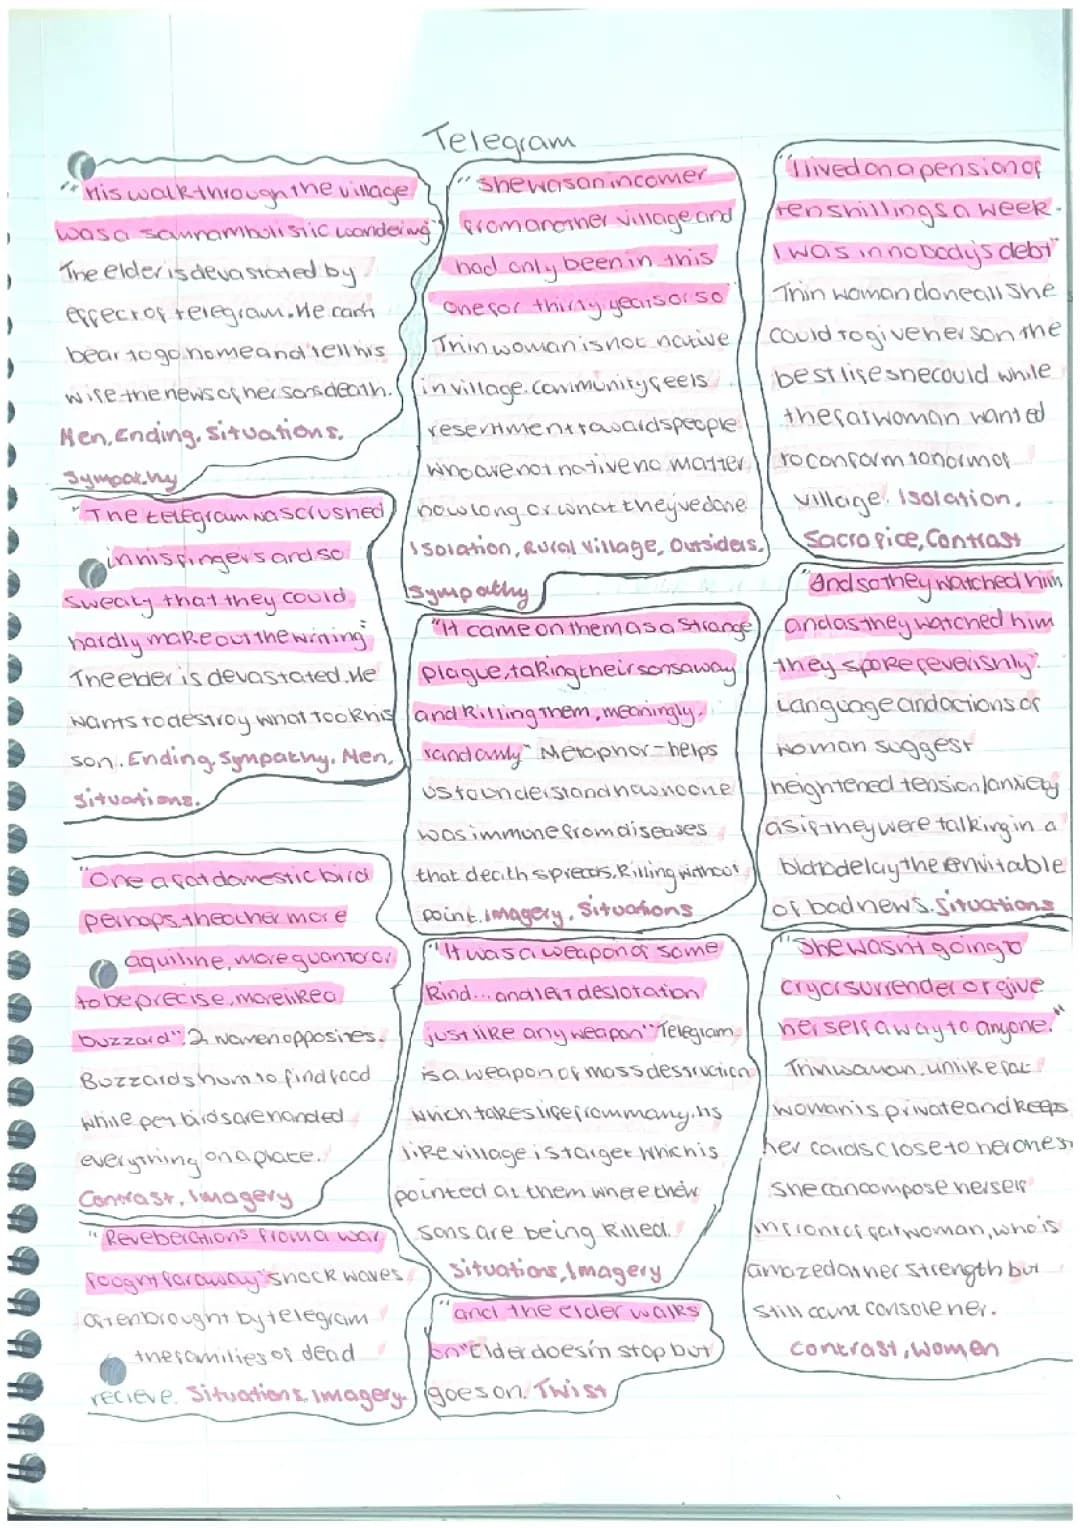 Telegram
"His walk through the village
was a somnambulistic wandering"
The elder is devastated by
effect of telegram. He cant
bear to go home and tell his
wife the news of her sons death.
Men, Ending, Situations,
Sympathy
"The telegram was crushed
in his fingers and so
sweaty that they could
hardly make out the writing"
The elder is devastated. He
wants to destroy what took his
son. Ending, Sympathy, Men,
Situations.
"One a fat domestic bird
perhaps, the other more
aquiline, more guant or
to be precise, more like a
buzzard". 2 women opposites.
Buzzards hunt to find food
while pet birds are handed
everything on a plate.
Contrast, Imagery
"Reveberations from a war
fought far away" shock waves
often brought by telegram
the families of dead
recieve. Situations, Imagery.
"she was an incomer
from another village and
had only been in this
one for thirty years or so
Thin woman is not native
in village. community feels
resentment towards people
who are not native no matter
how long or what they've done
Isolation, Rural Village, Outsiders,
Sympathy
"It came on them as a strange
plague, taking their sons away
and killing them, meaningly,
randomly" Metaphor - helps
us to understand how no one
was immune from diseases
that death spreads, killing without
point. Imagery, Situations
"It was a weapon of some
kind... and left deslotation
just like any weapon" Telegram
is a weapon of mass destruction
which takes life from many. Its
like village is target which is
pointed at them where their
sons are being killed.
Situations, Imagery
"and the elder walks
on" Elder doesn't stop but
goes on. Twist
"I lived on a pension of
ten shillings a week.
I was in nobody's debt"
Thin woman done all she
could to give her son the
best life she could while
the fat woman wanted
to conform to norm of
village. Isolation,
Sacrofice, Contrast
"And so they watched him
and as they watched him
they spoke feverishly".
Language and actions of
woman suggest
heightened tension/anxiety
as if they were talking in a
bid to delay the envitable
of bad news. Situations
"She wasn't going to
cry or surrender or give
herself away to anyone."
Thin woman, unlike fat
woman is private and keeps
her cards close to her chest
She can compose herself
infront of fat woman, who is
amazed at her strength but
still cant console her.
Contrast, Women